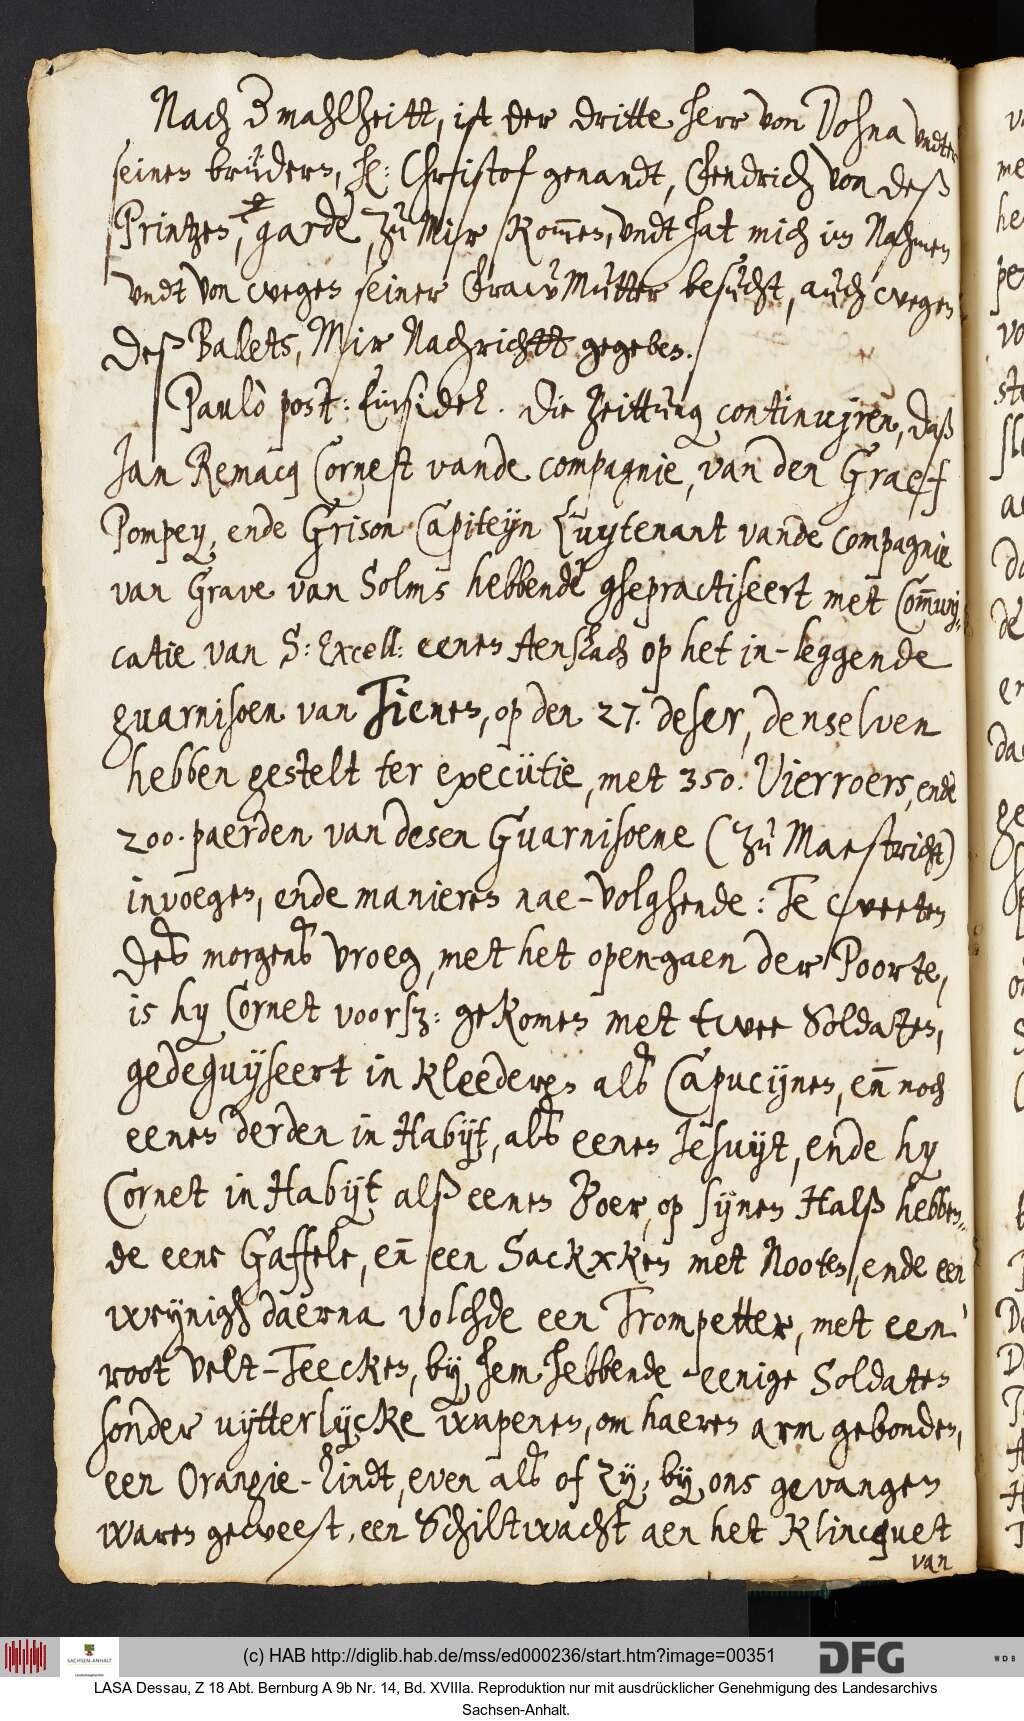 Nach 3 mahlzeitt, ist der dritte herr von Dohna vndter
seinen brüdern, h: Christof genandt, fendrich von deß
Printzen, garde, zu Mir kommen, vndt hat mich im Nahmen
vndt von wegen seiner fraw Mutter besücht, auch wegen
deß Balets, Mir Nachrichtt gegeben.
Paulò post: Einsidel. Die Zeittung continujren, daß
Jan Remacq Cornest vande compagnie, van den Graeff
Pompey, ende Grison Capiteijn Luytenant vande Compagnie
van Grave van Solms hebbende ghepractiseert met Communj=
catie van S: Excell: eenen Aenslach op het in-leggende
guarnisoen van Tienen, op den 27. deser, denselven
hebben gestelt ter execütie, met 350. Vierroers, ende
200. paerden van desen Guarnisoene (zu Mastricht)
invoegen, ende manieren nae-volghende: Te weeten
des morgens vroeg, met het open-gaen der Poorte,
is hy Cornet voorsz: gekomen met twee Soldaten,
gedeguyseert in kleederen als Capucijnen, en noch
eenen derden in Habijt, als eenen Jesuijt, ende hy
Cornet in Habijt alß eenen Boer, op sijnen Halß hebben=
de eene Gaffele, en een Sackxken met Nooten, ende een
weynigh daerna volchde een Trompetter, met een
root Velt-Teecken, bij hem hebbende eenige Soldaten
sonder uytterlijcke wapenen, om haeren arm gebonden,
een Orangie-Lindt, even als of zij, bij ons gevangen
waren geweest, een Schiltwacht aen het Klincquet
van
(c) HAB http://diglib.hab.de/mss/ed000236/start.htm?image=00351
SACHSEN-ANHALT
DFG
WDB
LASA Dessau, Z 18 Abt. Bernburg A 9b Nr. 14, Bd. XVIIIa. Reproduktion nur mit ausdrücklicher Genehmigung des Landesarchivs
Sachsen-Anhalt.